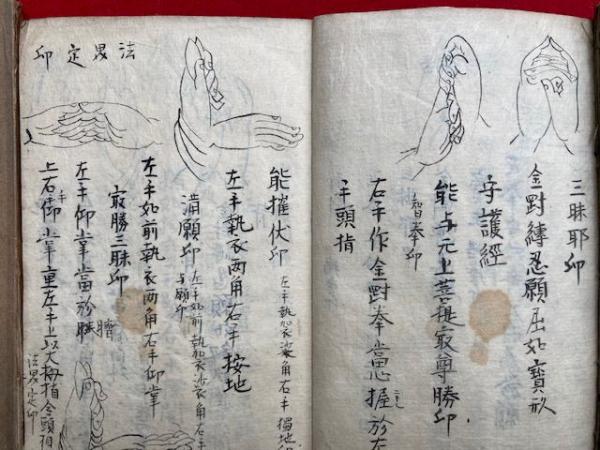 三昧耶印
金剛縛忍願屈如寶形
守護經
能与无上菩提㝡尊勝印
智拳印
右手作金剛拳當心握於左
手頭指
能摧伏印
左手執袈裟角右手
左手執衣两角右手按地
満願印
与願印
左手如前執袈裟角右手
左手如前執衣两角右手仰掌
㝡勝三昧印
左手仰掌當於
臍
上右手仰掌重左手上以大拇指令頭指
法界定印
法界定印